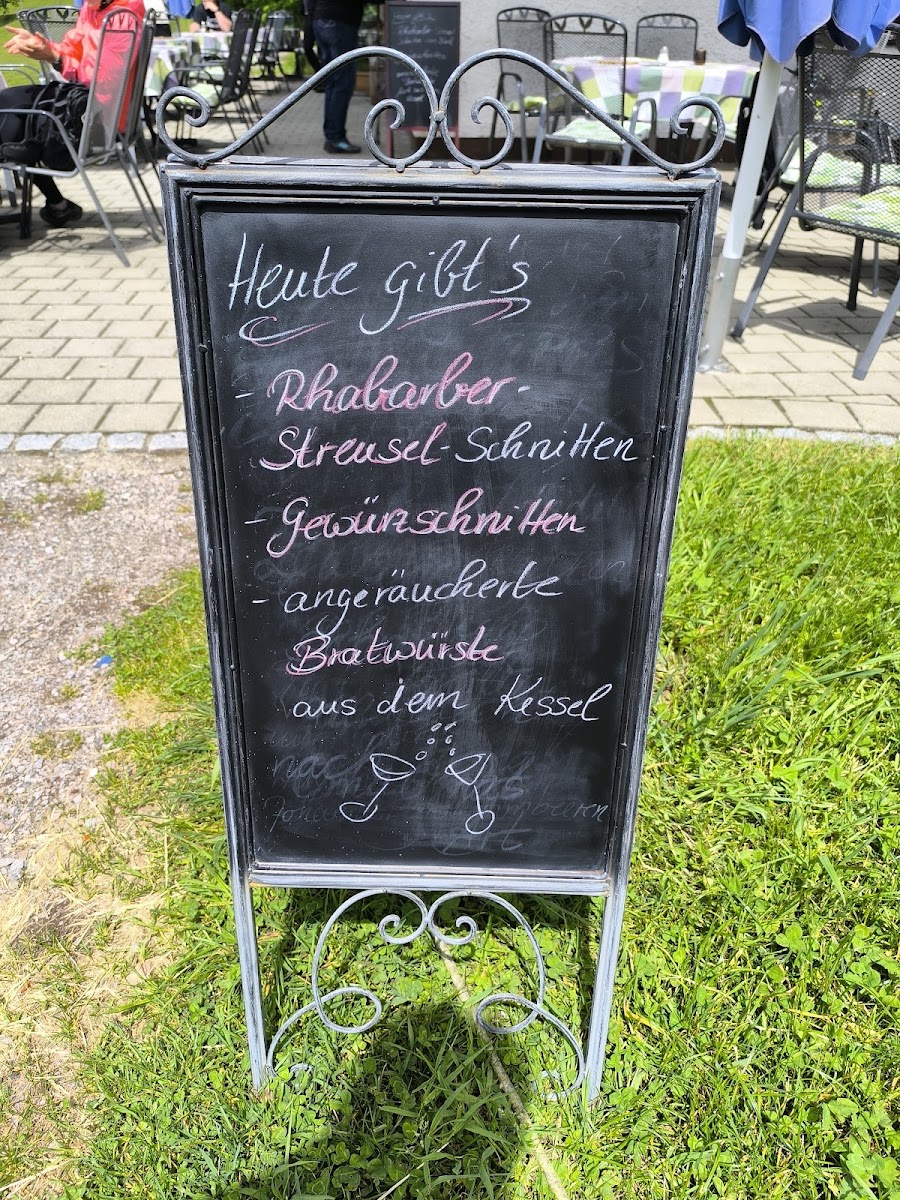 Heute gibt's
- Rhabarber-
Streusel-Schnitten
- Gewürzschnitten
- angeräucherte
Bratwürste
aus dem Kessel